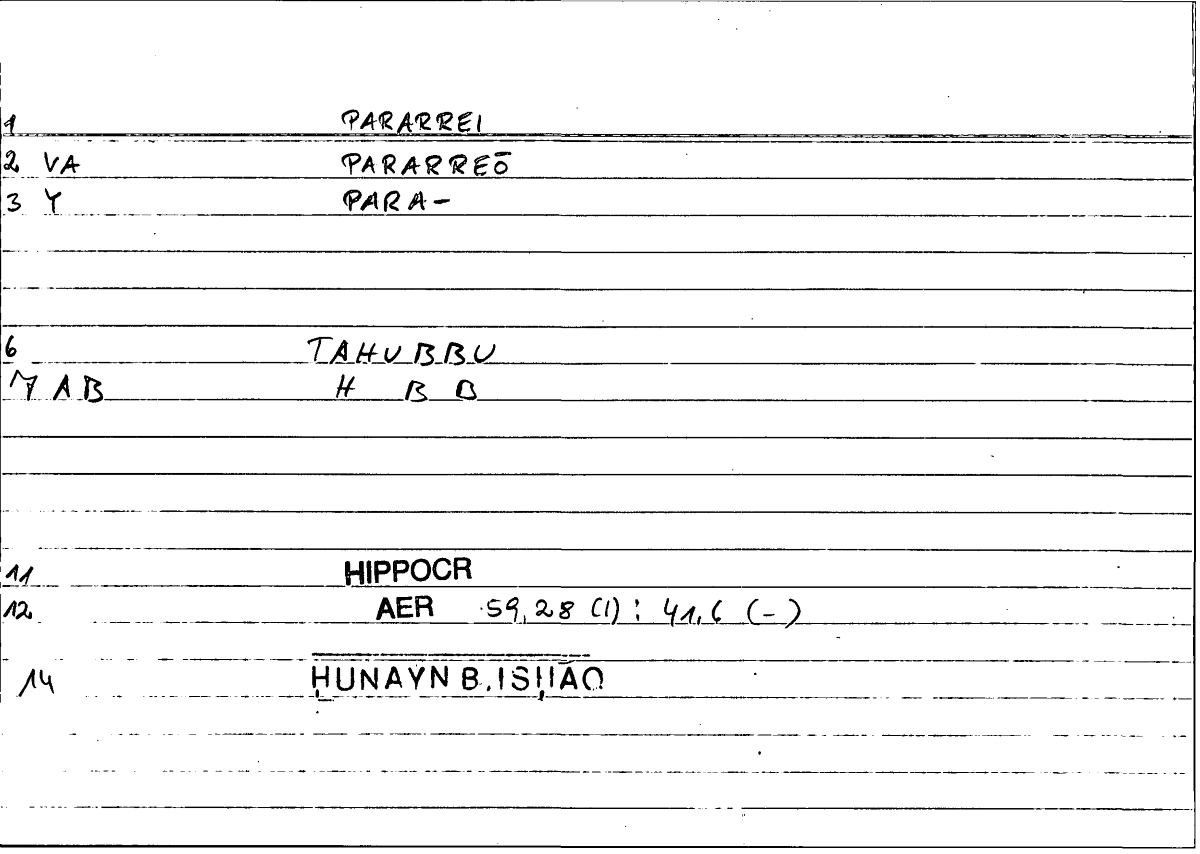 1 PARARREI
2 VA PARARREŌ
3 Y PARA-
6 TAHUBBU
7 AB H B B
11 HIPPOCR
12 AER 59,28 (1) : 41,6 (-)
14 ḤUNAYN B. ISḤĀQ